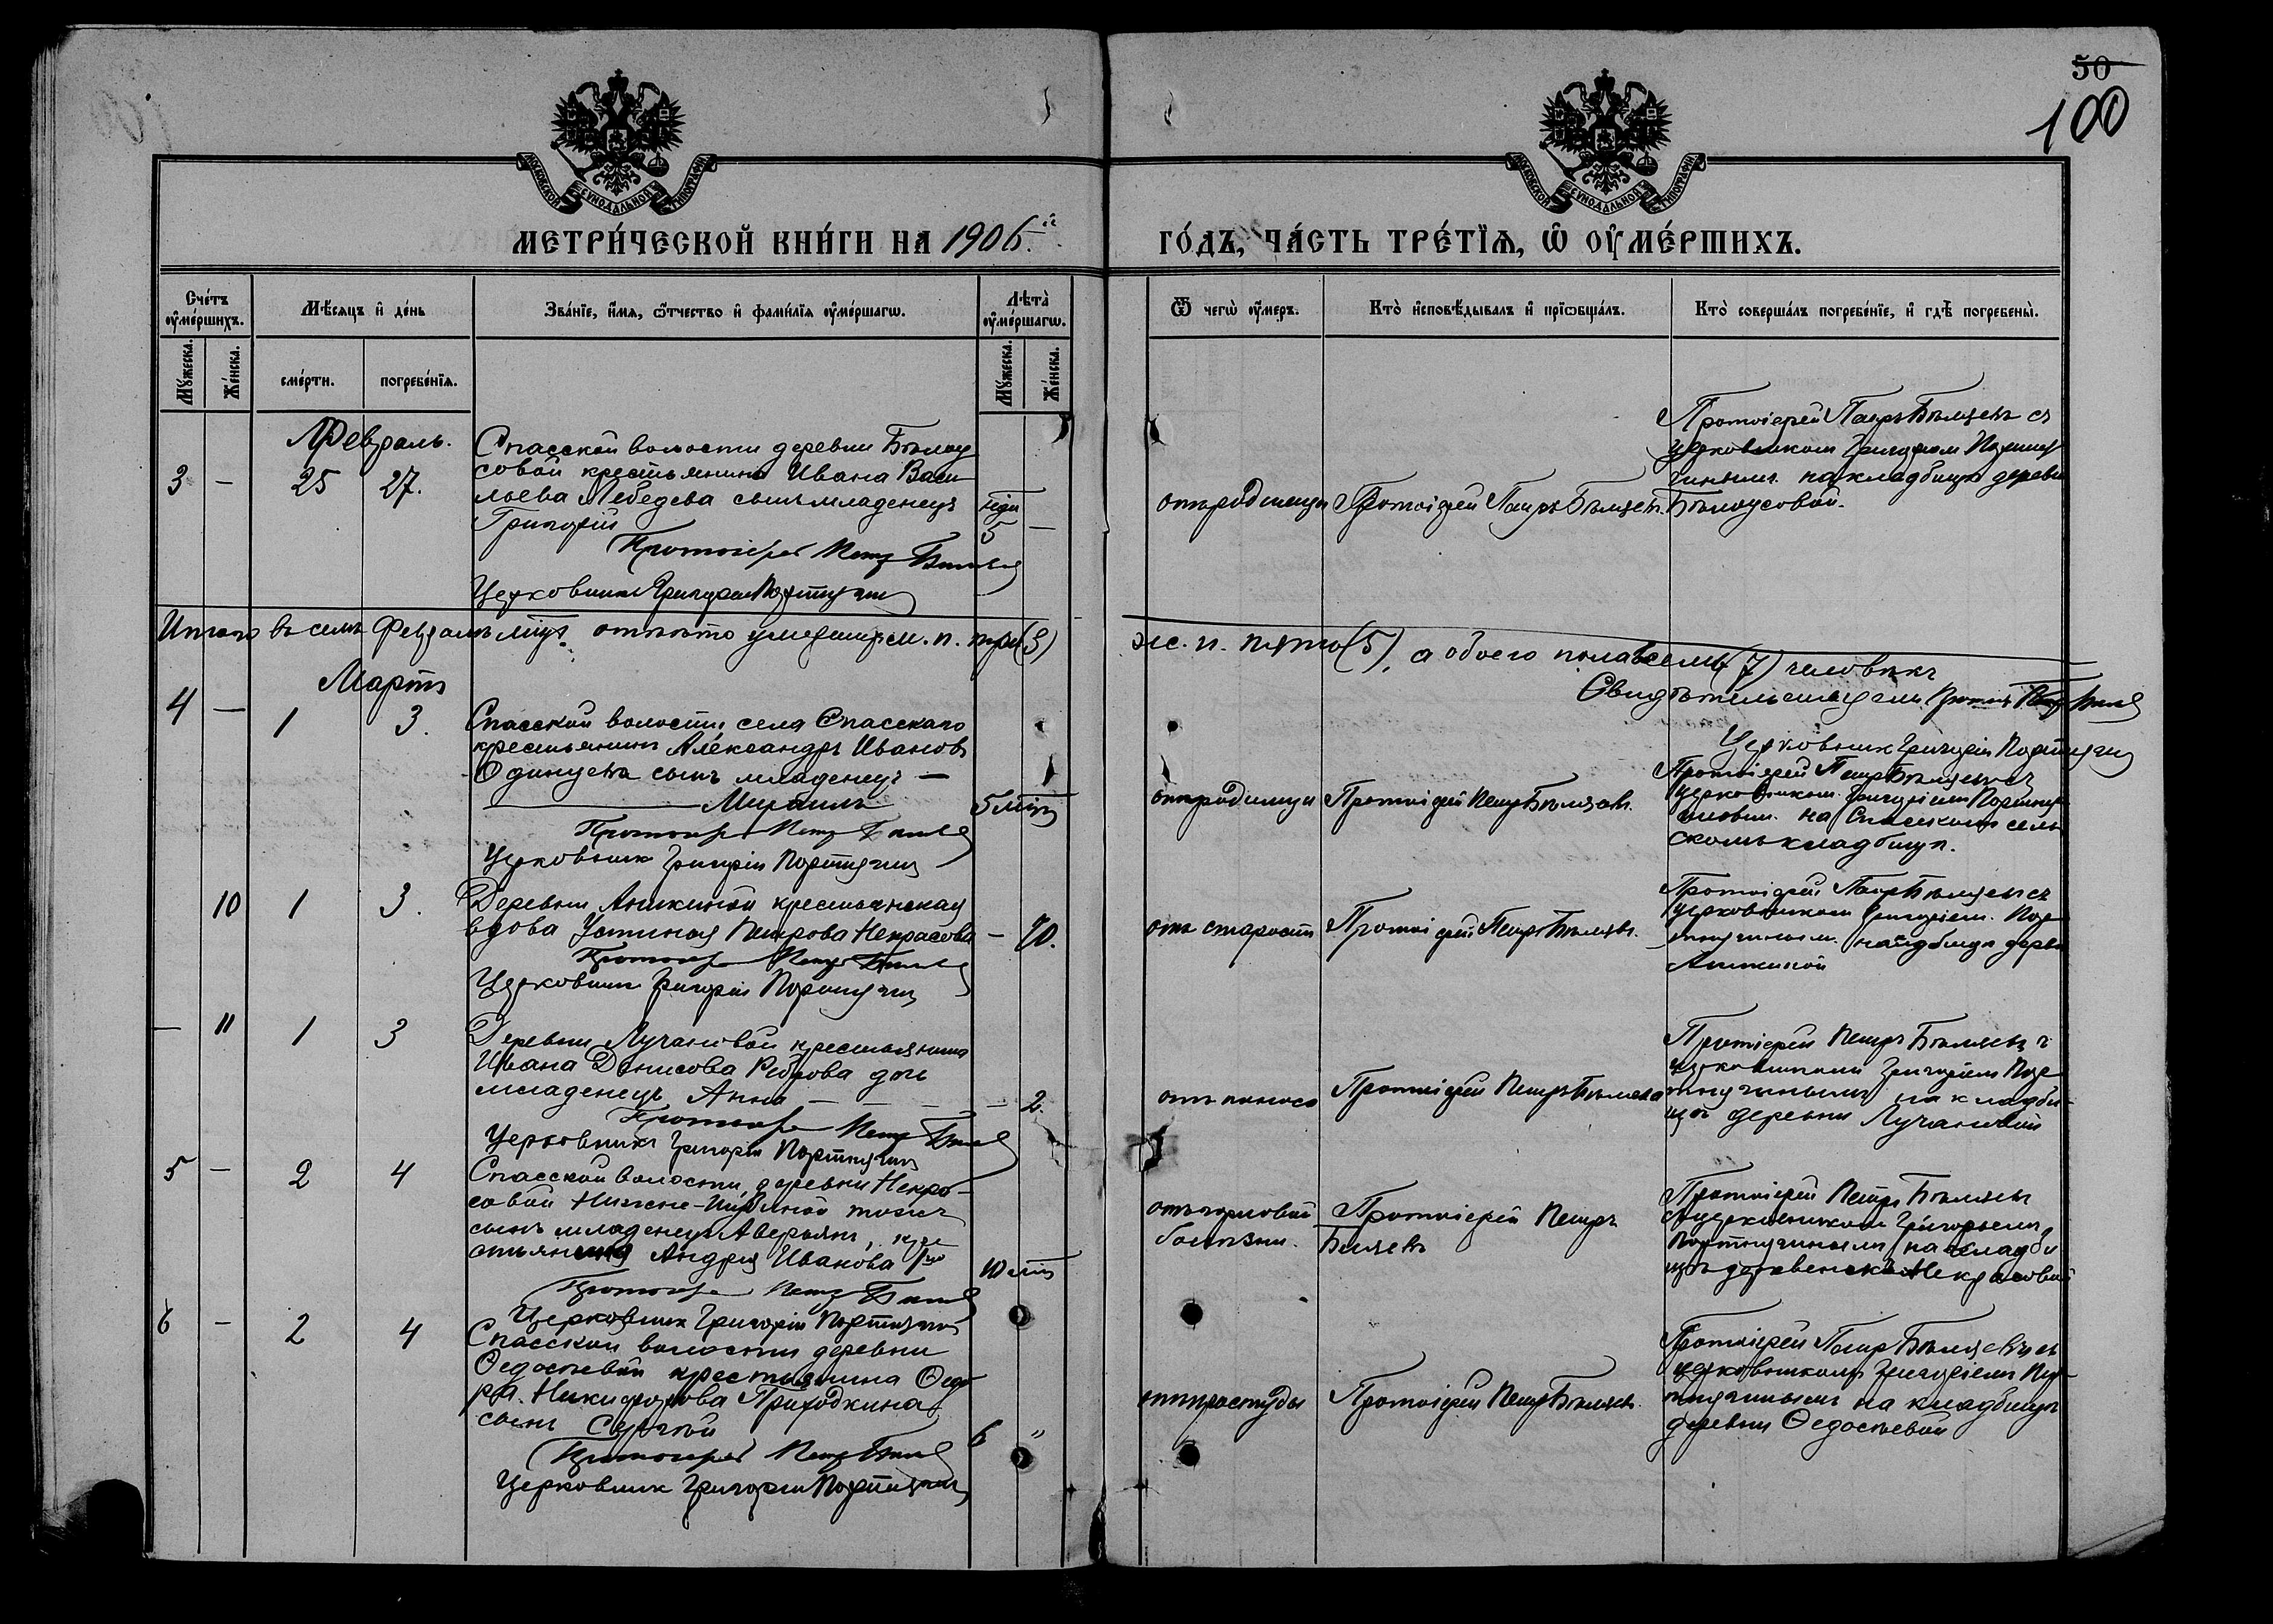 50
100
МОСКОВСКОЙ СѴНОДАЛЬНОЙ ТИПОГРАФІИ
МОСКОВСКОЙ СѴНОДАЛЬНОЙ ТИПОГРАФІИ
МЕТРИ́ЧЕСКОЙ КНИ́ГИ НА 1906.й
ГО́ДЪ, ЧА́СТЬ ТРЕ́ТЇЯ, Ѡ҆ ОУ҆МЕ́РШИХЪ.
Сче́тъ оу҆ме́ршихъ.
Мѣ́сяцъ и҆ де́нь
Зва́нїе, и҆́мя, ѻ҆́тчество и҆ фами́лїя оу҆ме́ршагѡ.
Лѣ́та оу҆ме́ршагѡ.
Ѿ чегѡ̀ оу҆́меръ.
Кто̀ и҆сповѣ́дывалъ и҆ прїѡбща́лъ.
Кто̀ соверша́лъ погребе́нїе, и҆ гдѣ̀ погребены̀.
Мꙋ́жеска.
Же́нска.
сме́рти.
погребе́нїя.
Мꙋ́жеска.
Же́нска.
Февраль.
3 — 25 27.
Спасской волости деревни Бѣлоу
совой крестьянина Ивана Васи
льева Лебедева сынъ младенецъ
Григорій
5 —
Протоіерей Петръ Бѣляевъ
Церковникъ Григорій Портнягинъ
отъ родимца
Протоіерей Петръ Бѣляевъ.
Протоіерей Петръ Бѣляевъ съ
церковникомъ Григоріем Портня
гинымъ на кладбищѣ деревни
Бѣлоусовой.
Итого въ семъ Февралѣ мцѣ отпѣто умершихъ м. п. три (3)
ж. п. пять (5), а обоего пола всемь (7) человѣкъ
Свидѣтельствуемъ Протоіерей Петръ Бѣляевъ
Церковникъ Григорій Портнягинъ
Мартъ
4 — 1 3.
Спасской волости села Спасскаго
крестьянина Александръ Ивановъ
Одинцева сынъ младенецъ —
Михаилъ
5 мцъ
Протоіерей Петръ Бѣляевъ
Церковникъ Григорій Портнягинъ
отъ родимца
Протоіерей Петръ Бѣляевъ.
Протоіерей Петръ Бѣляевъ съ
церковникомъ Григоріемъ Портня
гиным. на Спасскомъ сель
скомъ кладбищѣ.
10 1 3.
Деревни Аникиной крестьянская
вдова Устинья Петрова Некрасова — 70.
Протоіерей Петръ Бѣляевъ
Церковникъ Григорій Портнягинъ
отъ старости
Протоіерей Петръ Бѣляевъ.
Протоіерей Петръ Бѣляевъ съ
церковникомъ Григоріем. Пор
тнягиным. деревни
Аникиной
— 11 1 3
Деревни Лучановой крестьянина
Ивана Денисова Реброва дочь
младенецъ Анна — — — — 2.
Протоіерей Петръ Бѣляевъ
Церковникъ Григорій Портнягинъ
отъ поноса
Протоіерей Петръ Бѣляевъ
Протоіерей Петръ Бѣляевъ съ
церковникомъ Григоріем Пор
тнягинымъ на кладби
щѣ деревни Лучановой
5 — 2 4
Спасской волости деревни Некра-
совой
сынъ младенецъ Аверьянъ, кре
стьянина Андрея Иванова
10 мцъ
Протоіерей Петръ Бѣляевъ
Церковникъ Григорій Портнягинъ
отъ горловой
болѣзни.
Протоіерей Петръ
Бѣляевъ
Протоіерей Петръ Бѣляевъ
съ церковникомъ Григорьемъ
Портнягинымъ на кладби
щѣ деревенскомъ Некрасовой
6 — 2 4
Спасской волости деревни
Ѳедосѣевой крестьянина Ѳедо
ра Никифорова Приходкина
сынъ Сергѣй
6 "
Протоіерей Петръ Бѣляевъ
Церковникъ Григорій Портнягинъ
отъ простуды
Протоіерей Петръ Бѣляевъ.
Протоіерей Петръ Бѣляевъ съ
церковникомъ Григоріемъ Пор-
тнягинымъ на кладбищѣ
деревни Ѳедосѣевой